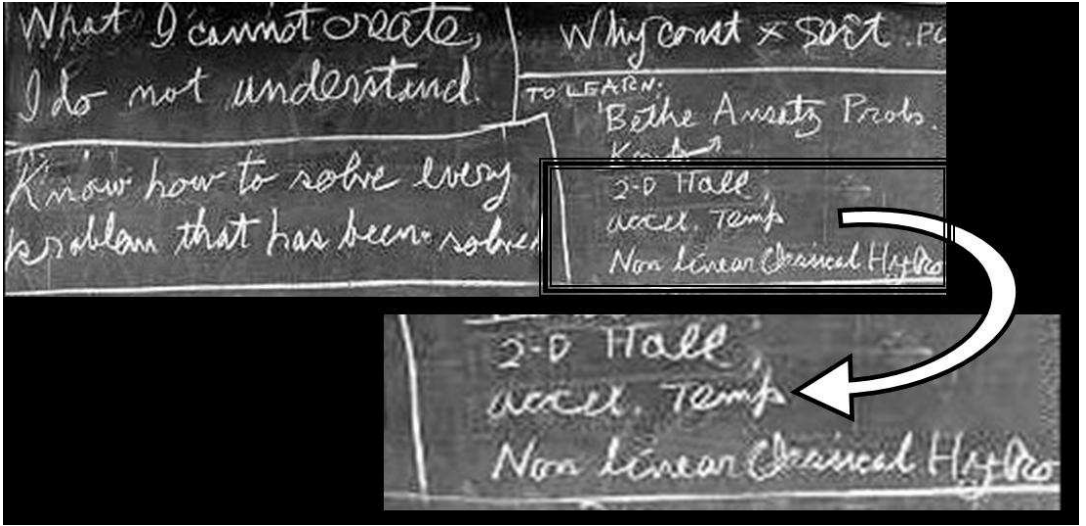 What I cannot create,
I do not understand.
Know how to solve every
problem that has been solved
Why const × sort .PO
TO LEARN:
Bethe Ansatz Probs.
2-D Hall,
accel. Temp
Non Linear Classical Hydro
2-D Hall,
accel. Temp
Non Linear Classical Hydro